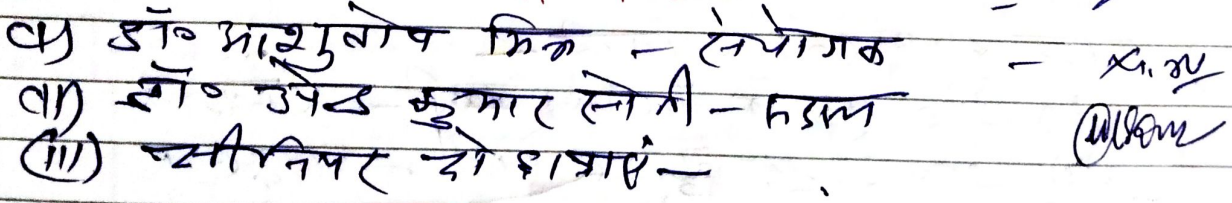 (i) डॉ० आशुतोष मिश्र - संयोजक -
(ii) डॉ० उपेन्द्र कुमार सोनी -
(iii) सीनियर दो छात्राएं -